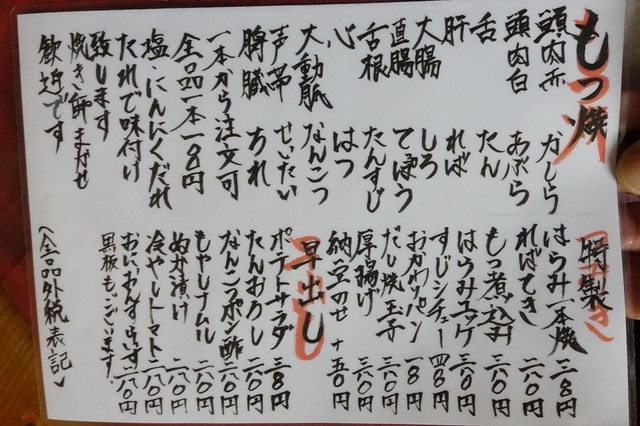 もつ焼
頭肉赤 かしら
頭肉白 あぶら
舌 たん
肝 ればー
大腸 しろ
直腸 てっぽう
舌根 たんすじ
心 はつ
大動脈 なんこつ
声帯 せいたい
脾臓 ちれ
一本から注文可
全品一本一八〇円
塩、にんにくだれ
たれで味付け
致します
焼き師まかせ
歓迎です
特製
はらみ一本焼 三八〇円
ればてき 二八〇円
もつ煮込み 三六〇円
はらみユッケ 三六〇円
すじシチュー 四八〇円
おかわりパン 一八〇円
だし焼玉子 三六〇円
厚揚げ 三六〇円
納豆のせ +五〇円
早出し
ポテトサラダ 三八〇円
たんおろし 二六〇円
なんこつポン酢 二六〇円
もやしナムル 二八〇円
ぬか漬け 二八〇円
冷やしトマト 二八〇円
おにおんすらいす 二八〇円
黒板もございます。
〈全品外税表記〉